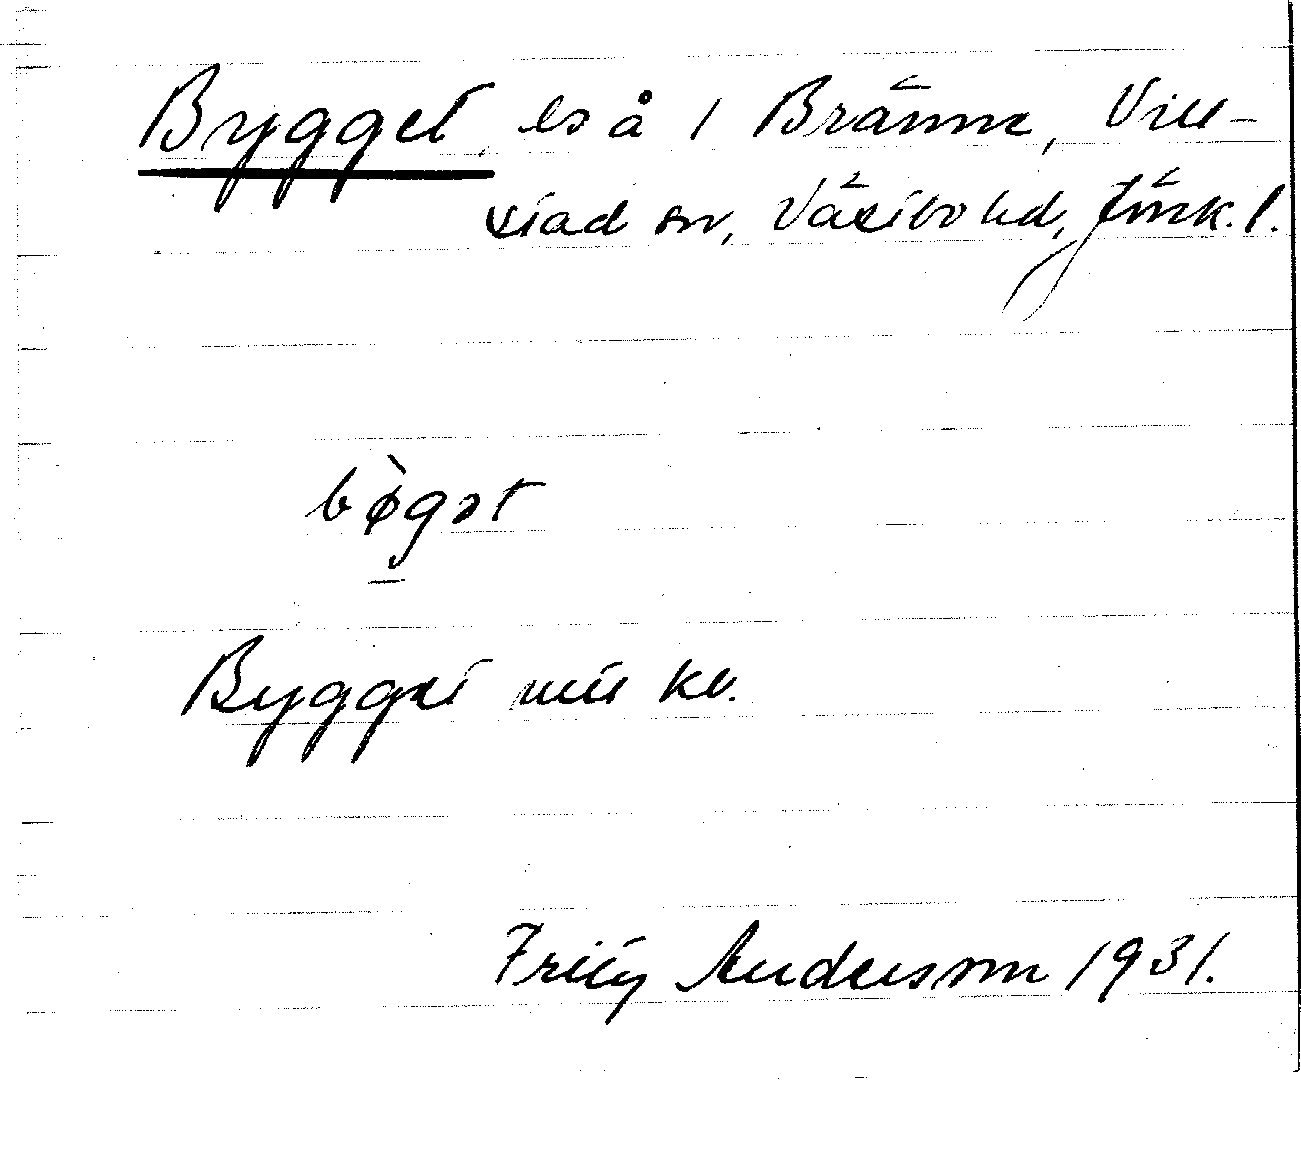 Bygget, ls å 1 Bränne, Vill-
stad sn, Västbo hd, Jönk. l.
bø̀gət
Bygget mtl kv.
Fritz Andersson 1931.